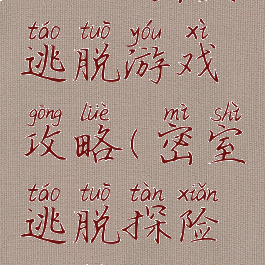 táo tuō yóu xì
逃脱游戏
gōng lüè mì shì
攻略(密室
táo tuō tàn xiǎn
逃脱探险